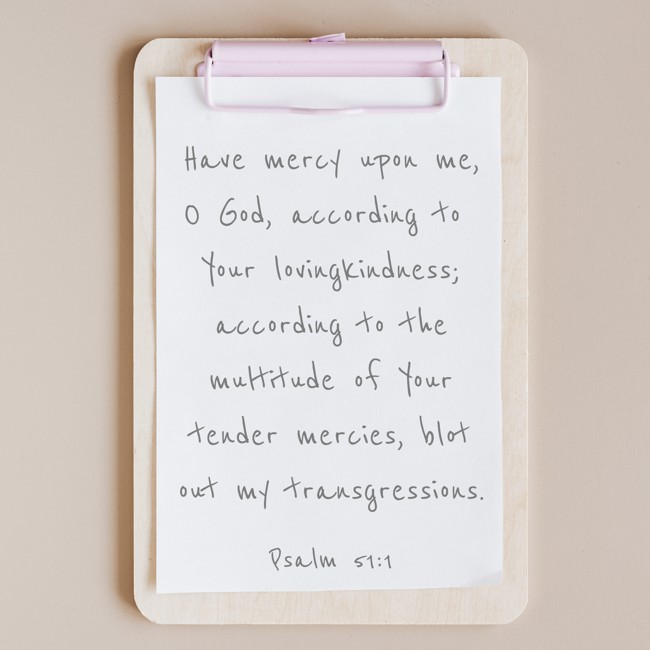 Have mercy upon me,
O God, according to
Your lovingkindness;
according to the
multitude of Your
tender mercies, blot
out my transgressions.
Psalm 51:1